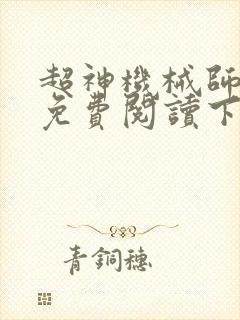 超神機械師
免費閱讀下
青銅穗